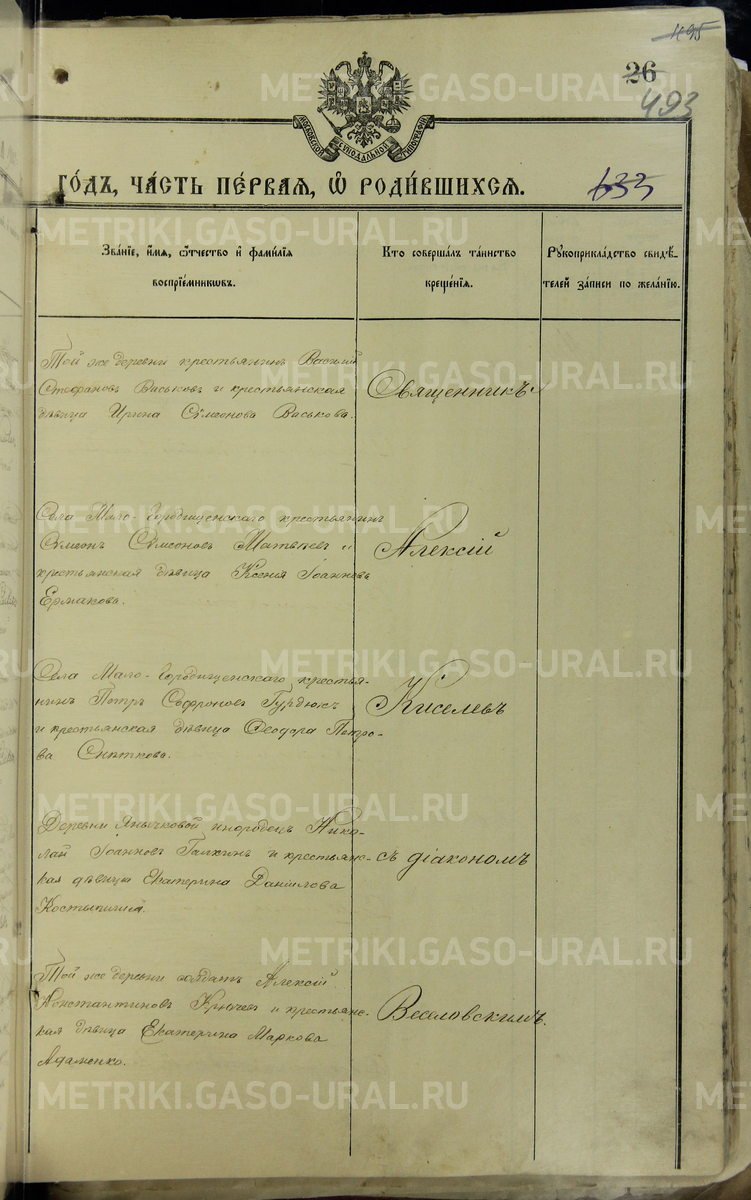 1195
26
493
МОСКОВСКОЙ СѴНОДАЛЬНОЙ ТИПОГРАФІИ
ГО́ДЪ, ЧА́СТЬ ПЕ́РВАЯ, Ѡ҆ РОДИ́ВШИХСЯ.
633
Зва́нїе, и҆́мѧ, ѻ҆́тчество и҆ фами́лїѧ
воспрїе́мникѡвъ.
Кто̀ соверша́лъ та́инство
креще́нїѧ.
Рꙋкоприкла́дство свидѣ́-
телей за́писи по жела́нїю.
Той же деревни крестьянинъ Василій
Стефановъ Васьковъ и крестьянская
дѣвица Ирина Сѵмеонова Васькова.
Священникъ
Села Мало-Городищенскаго крестьянин
Сѵмеонъ Сѵмеоновъ Матвѣев и
крестьянская дѣвица Ксенія Іоаннова
Ермакова.
Алексій
Села Мало-Городищенскаго крестья-
нинъ Петръ Софроновъ Гурдюкъ
и крестьянская дѣвица Ѳеодора Петро-
ва Сниткова.
Киселевъ
Деревни Янычковой инородецъ Нико-
лай Іоанновъ Галкинъ и крестьянс-
кая дѣвица Екатерина Даніилова
съ діакономъ
Той же деревни солдатъ Алексій
Константиновъ Крючев и крестьянс-
кая дѣвица Екатерина Маркова
Адаменко.
Веселовскимъ.
METRIKI.GASO-URAL.RU